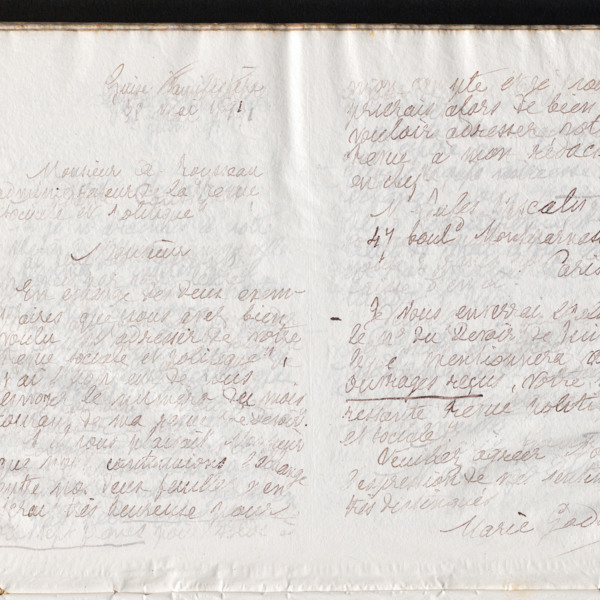 Guise Familistère
Mai 1891
Monsieur A. Rousseau
administrateur de la "Revue
sociale et politique"
Monsieur
En échange de deux exem-
aires que vous avez bien
voulu m'adresser de votre
"Revue sociale et politique",
j'ai l'honneur de vous
envoyer le numéro du mois
courant de ma revue le Devoir.
S'il vous plaisait, Monsieur
que nous continuions l'échange
entre nos deux feuilles j'en
serai très heureuse pour
et je vous
prierais alors de bien
vouloir adresser vot
revue à mon rédac
en chef
M. Jules Pascaly
47 boul.d Montparnass
Paris
Je vous enverrai
le n° du Devoir de Juin
mentionnera
ouvrages reçus, votre
ressante revue politi
et sociale
Veuillez agréer Mo
l'expression de mes senti
très distingués
Marie God